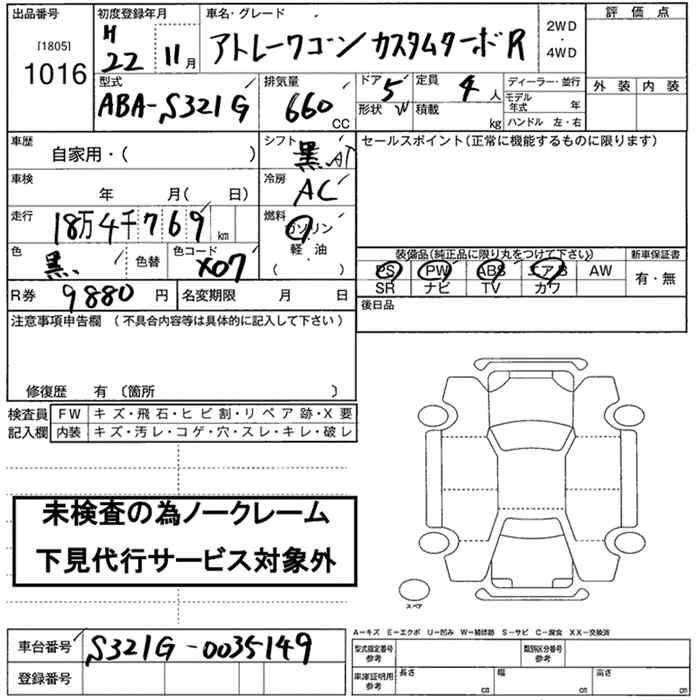 出品番号 初度登録年月 車名・グレード 2WD ・ 4WD 評価点
[1805] 1016 H 22 11月 アトレーワゴン カスタムターボR
型式 排気量 ドア 5 定員 4人 ディーラー・並行 外装 内装
ABA-S321G 660 CC 形状 W 積載 kg モデル年式 年
ハンドル 左・右
車歴 自家用・( ) シフト 黒 AT セールスポイント(正常に機能するものに限ります)
車検 年 月( 日) 冷房 AC
走行 18万4千769 km 燃料 ガソリン・軽・油 ( )
色 黒 色替 色コード X07 装備品(純正品に限り丸をつけて下さい) 新車保証書
PS PW ABS エアB AW 有・無
SR ナビ TV カワ
R券 9880円 名変期限 月 日 後日品
注意事項申告欄(不具合内容等は具体的に記入して下さい)
修復歴 有 〔箇所 〕
検査員 FW キズ・飛石・ヒビ割・リペア跡・X要
記入欄 内装 キズ・汚レ・コゲ・穴・スレ・キレ・破レ
未検査の為ノークレーム
下見代行サービス対象外
スペア
A-キズ E-エクボ U-凹み W-補修跡 S-サビ C-腐食 XX-交換済
車台番号 S321G-0035149 型式指定番号 参考 類別区分番号 参考
登録番号 車庫証明用 参考 長さ cm 幅 cm 高さ cm